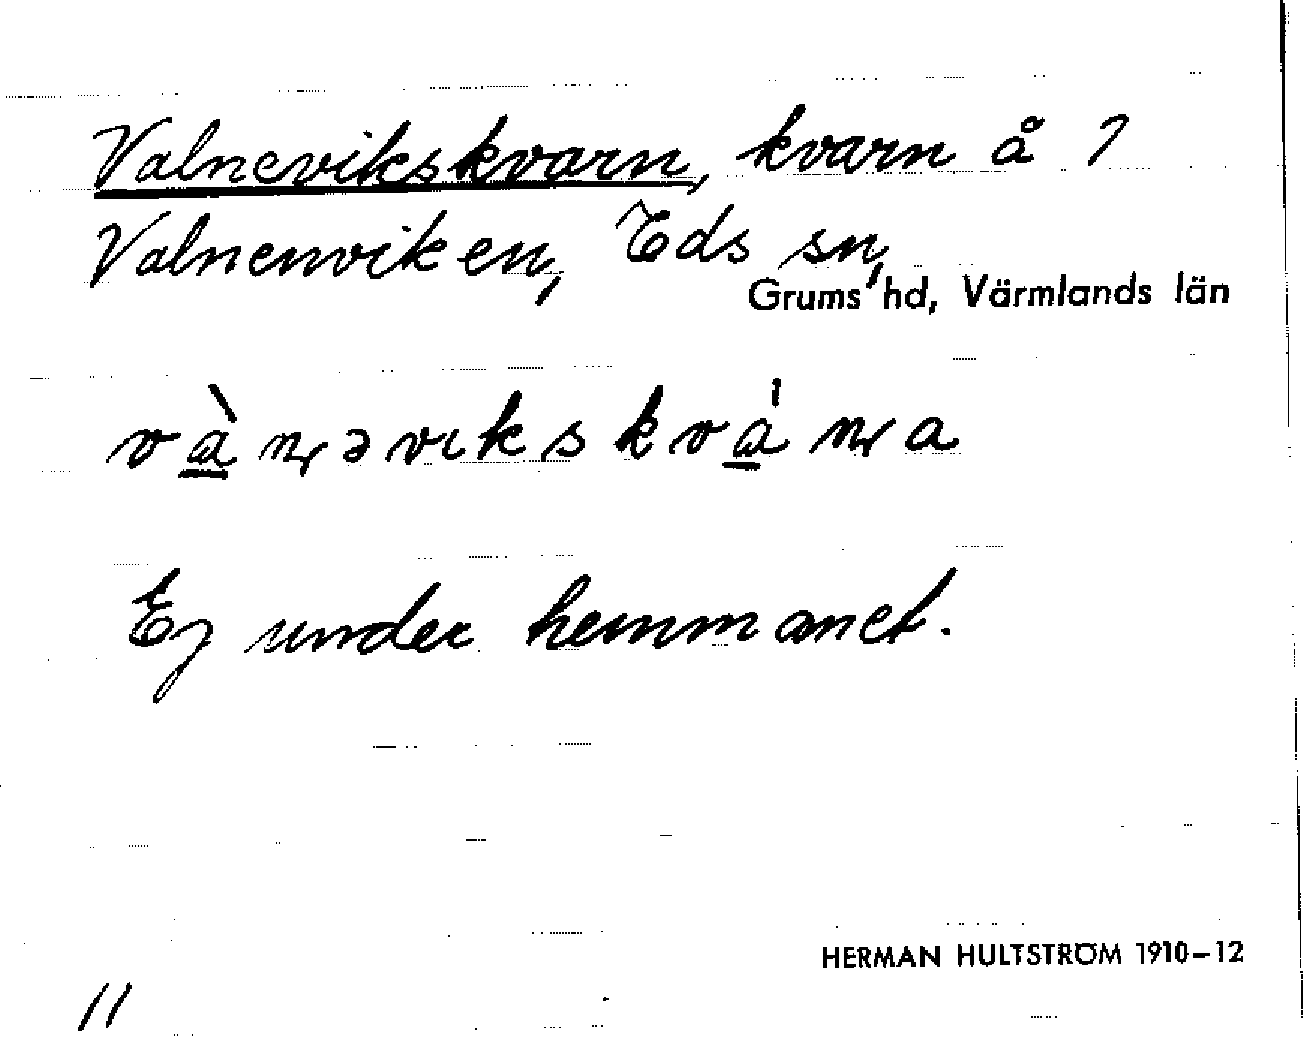 Valnevikskvarn, kvarn å 1
Valnenviken, Eds sn,
Grums hd, Värmlands län
và̠ɳəvɩkskvá̠ɳa
Ej under hemmanet.
HERMAN HULTSTRÖM 1910–12
11